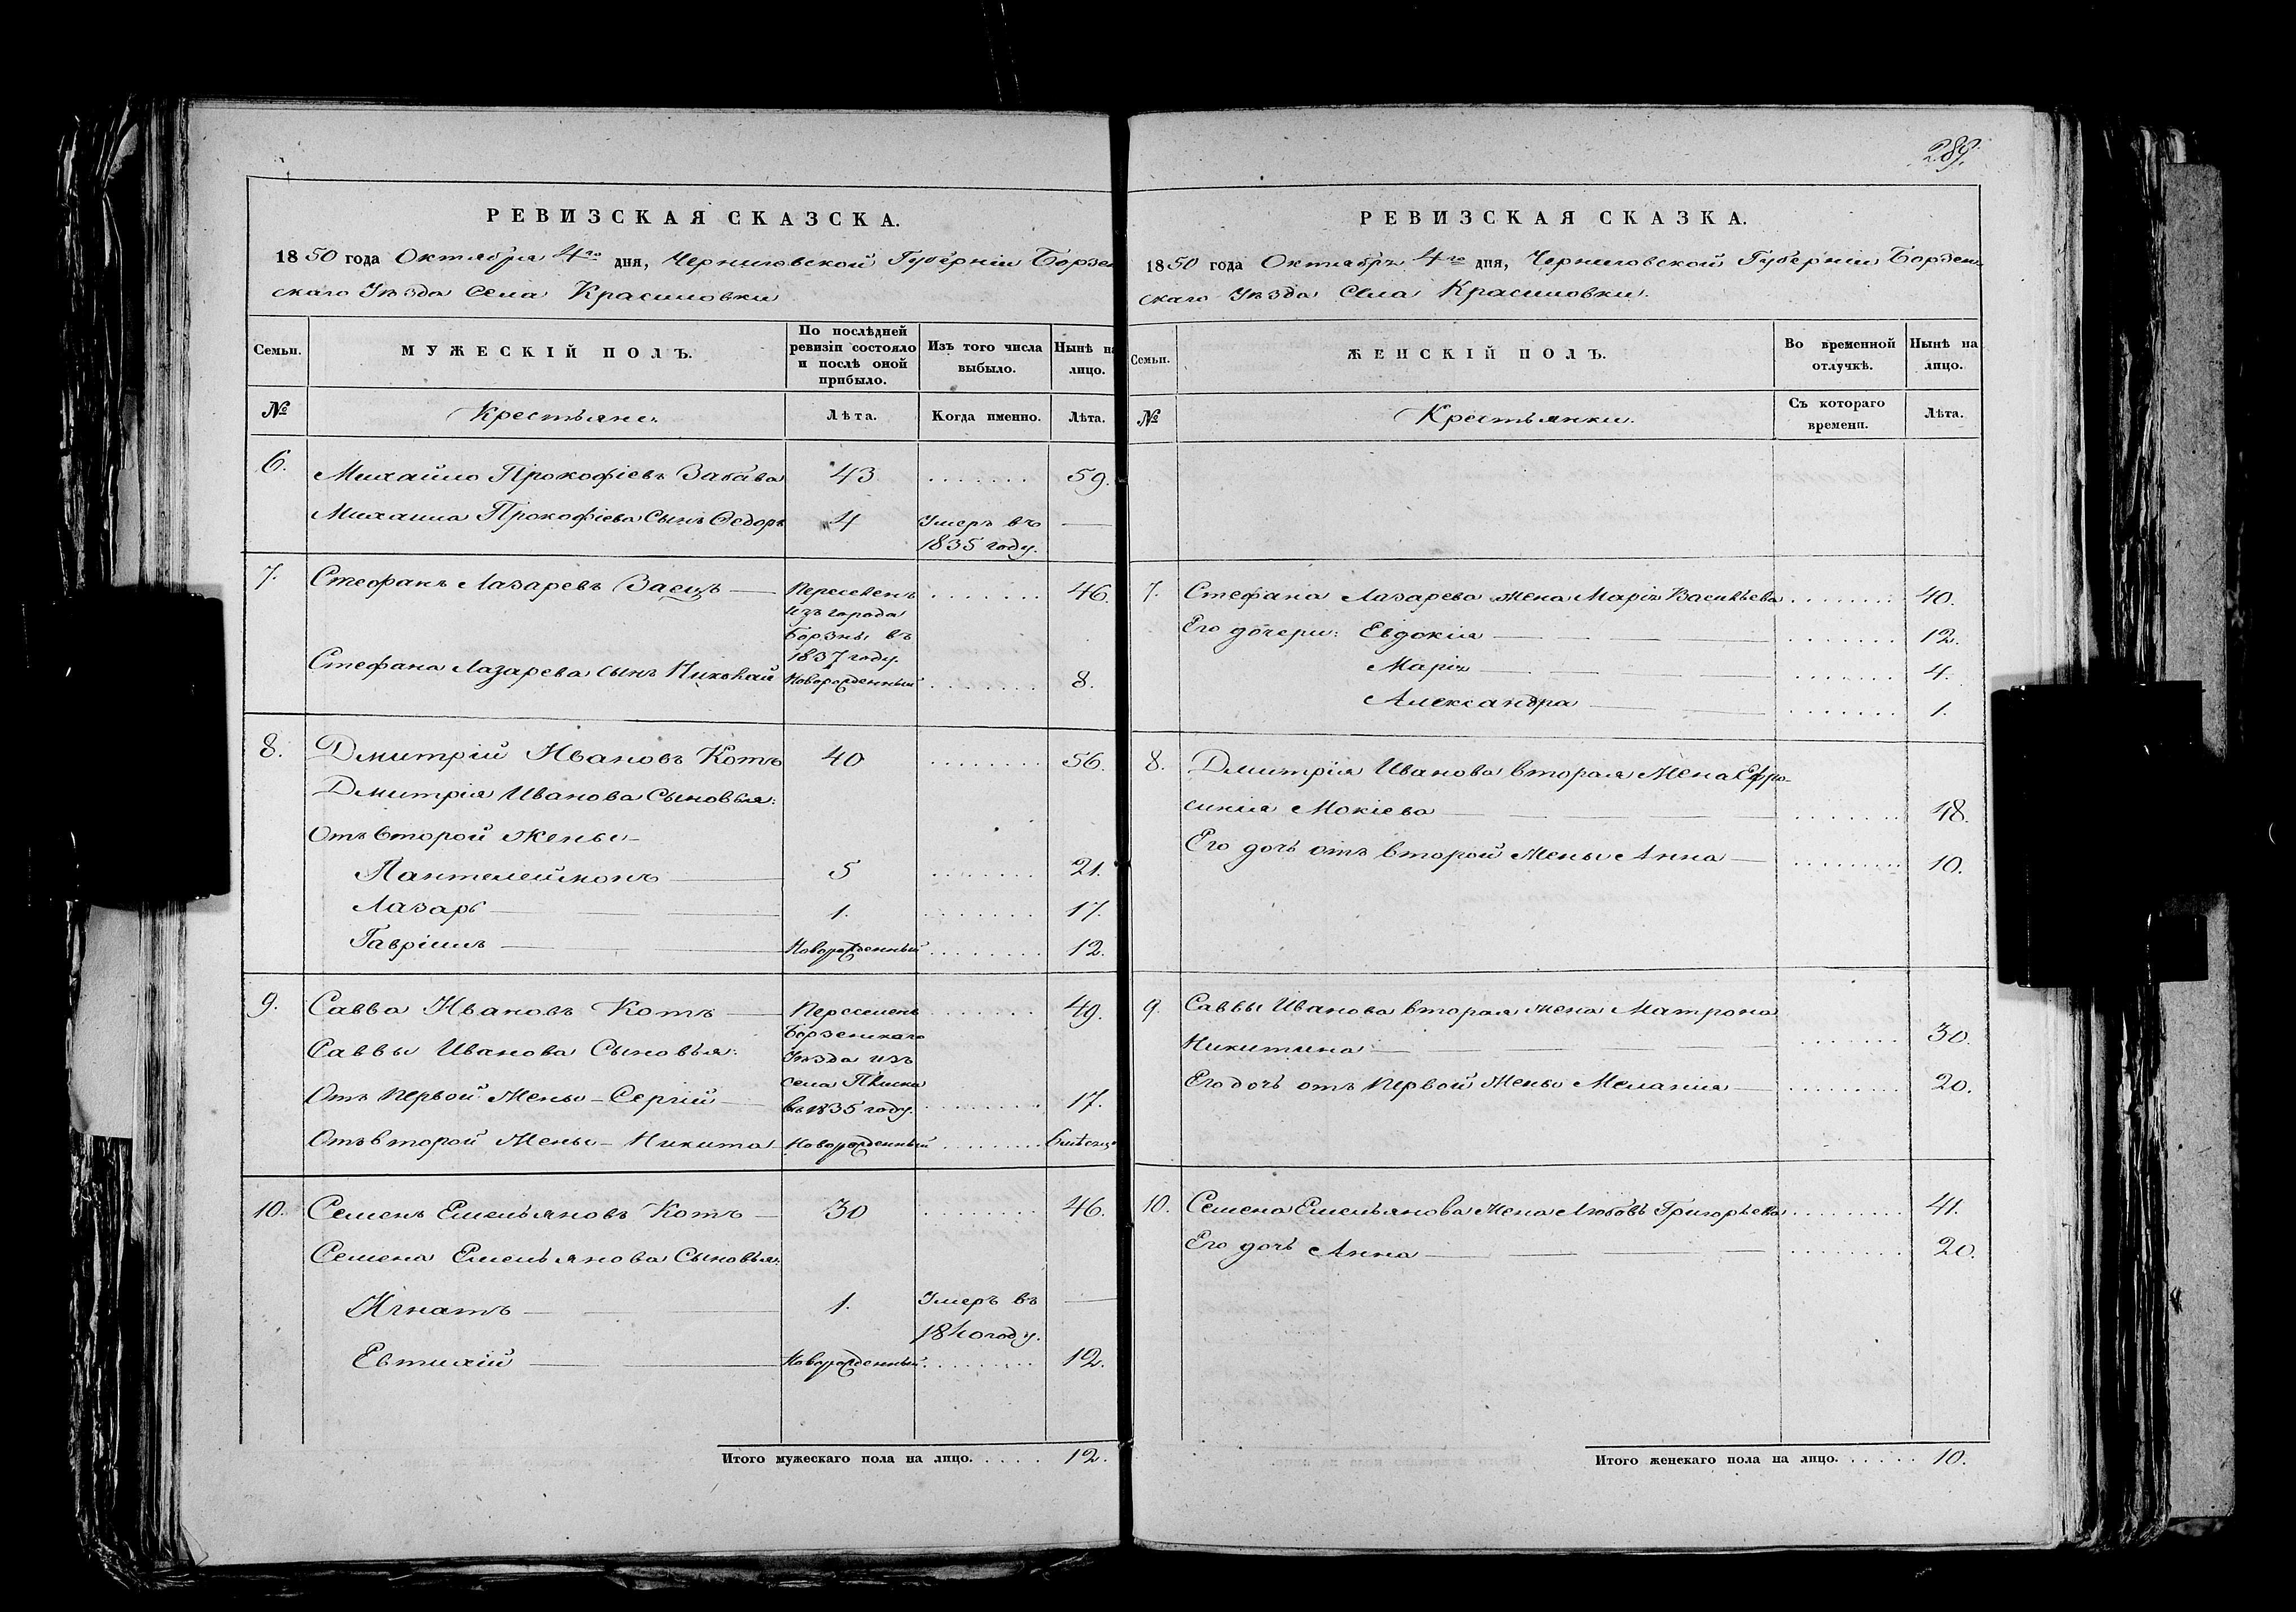 РЕВИЗСКАЯ СКАЗСКА.
1850 года Октября 4го дня, Черниговской Губерніи Борзен
скаго Уѣзда Села Красиловки
Семьи.
МУЖЕСКІЙ ПОЛЪ.
По послѣдней
ревизіи состояло
и послѣ оной
прибыло.
Изъ того числа
выбыло.
Нынѣ на
лицо.
№
Крестьяне.
Лѣта.
Когда именно.
Лѣта.
6.
Михайло Прокофіевъ Забава
43
59.
Михаила Прокофіева Сынъ Ѳедоръ
4
Умеръ въ
1835 году.
7.
Стефанъ Лазаревъ Заецъ
Переселенъ
изъ города
Борзны въ
1837 году.
46.
Стефана Лазарева сынъ Николай
Новорожденный
8.
8.
Дмитрій Ивановъ Котъ
40
56.
Дмитрія Иванова Сыновья:
Отъ второй Жены
Пантелеймонъ
5
21.
Лазарь
1.
17.
Гавріилъ
Новорожденный
12.
9.
Савва Ивановъ Котъ
Переселенъ
Борзенскаго
Уѣзда изъ
села Плиска
въ 1835 году.
49.
Саввы Иванова Сыновья:
Отъ первой Жены - Сергій
17.
Отъ второй Жены - Никита
Новорожденный
6 мѣсяц
10.
Семенъ Емельяновъ Котъ
30
46.
Семена Емельянова Сыновья:
Игнатъ
1.
Умеръ въ
1840 году.
Евтихій
Новорожденный
12.
Итого мужескаго пола на лицо.
12.
289.
РЕВИЗСКАЯ СКАЗКА.
1850 года Октября 4го дня, Черниговской Губерніи Борзен
скаго Уѣзда Села Красиловки.
Семьи.
ЖЕНСКІЙ ПОЛЪ.
Во временной
отлучкѣ.
Нынѣ на
лицо.
№
Крестьянки.
Съ котораго
времени.
Лѣта.
7.
Стефана Лазарева жена Марія Васильева
40.
Его дочери: Евдокія
12.
Марія
4.
Александра
1.
8.
Дмитрія Иванова вторая Жена Ефро-
синія Мокіева
48.
Его дочь отъ второй Жены Анна
10.
9.
Саввы Иванова вторая жена Матрона
Никитина
30.
Его дочь отъ первой Жены Меланія
20.
10.
Семена Емельянова Жена Любовь Григорьева
41.
Его дочь Анна
20.
Итого женскаго пола на лицо.
10.